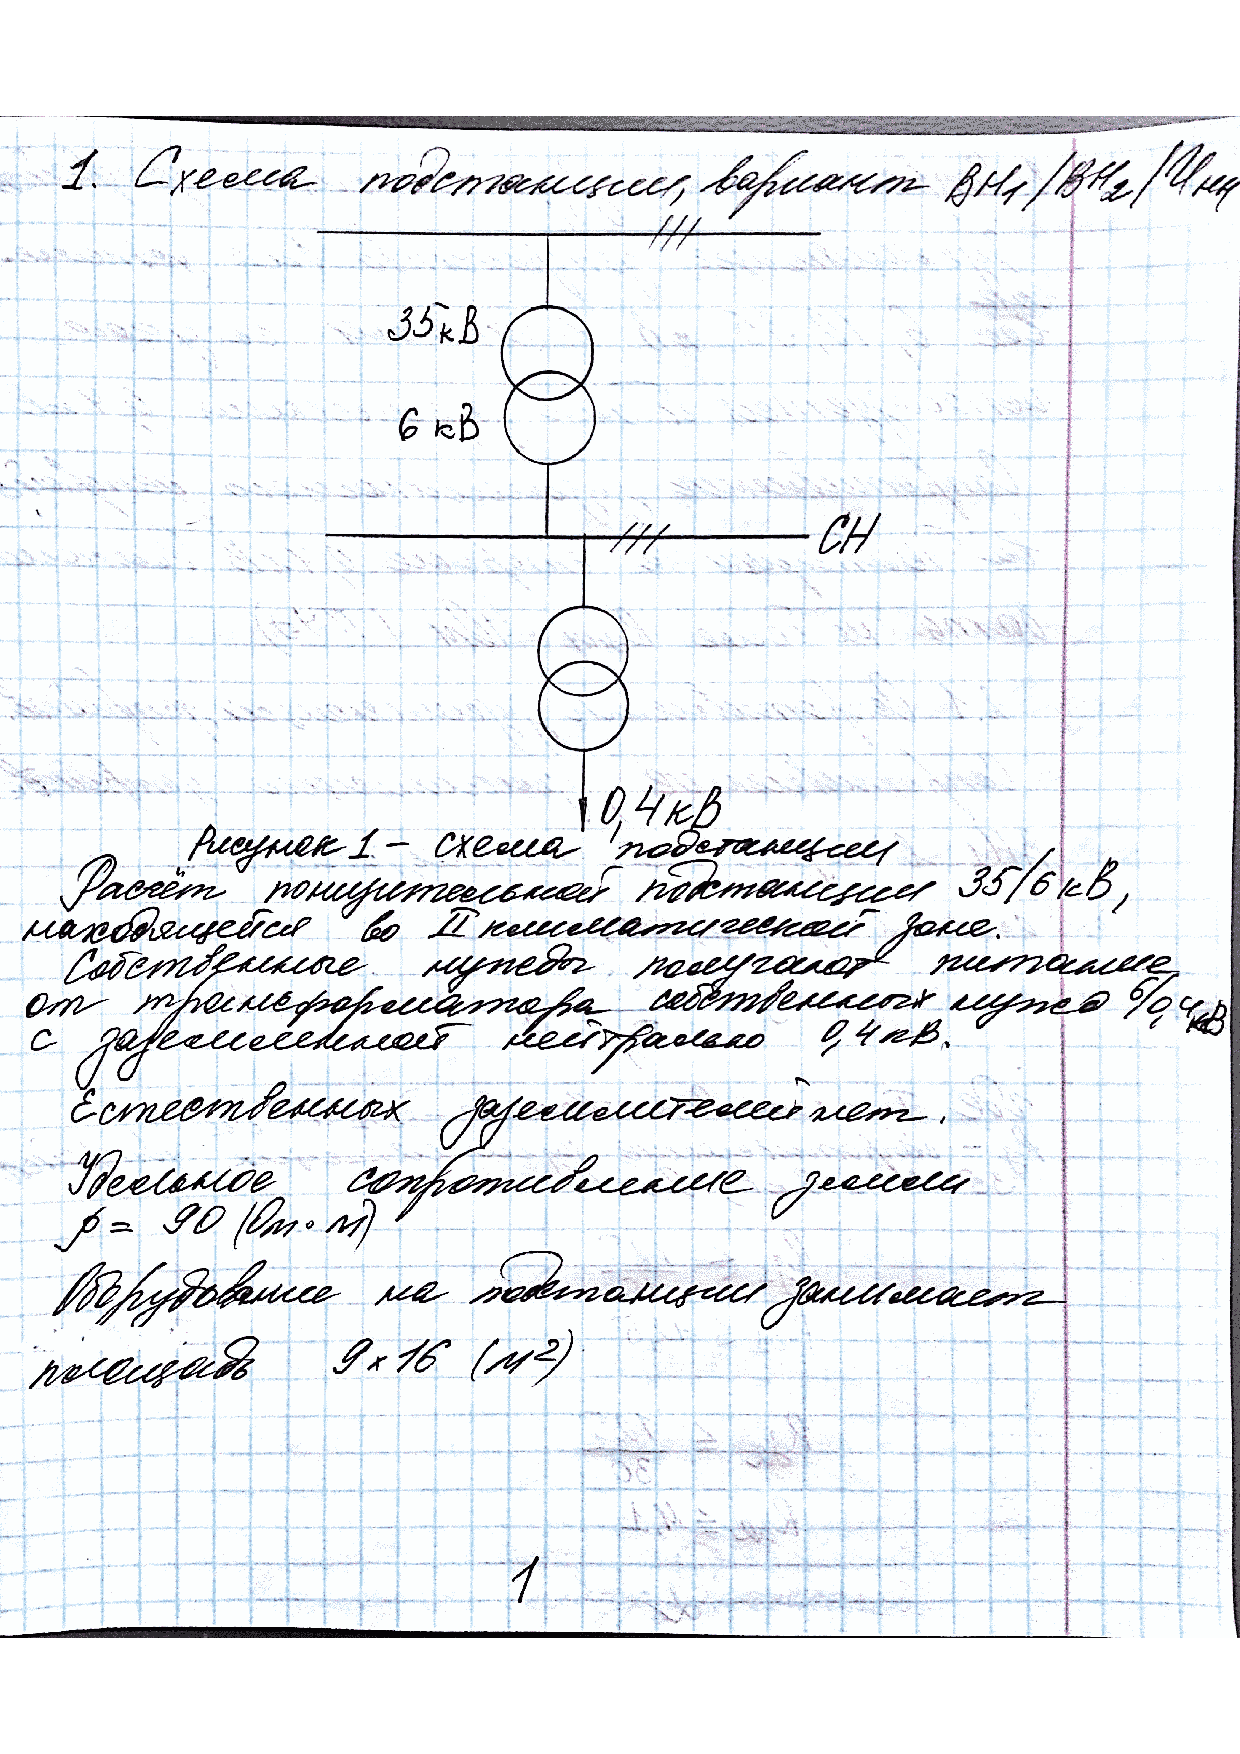 1. Схема подстанции, вариант ВН1/ВН2/Uнн
35кВ
6 кВ
СН
0,4 кВ
Рисунок 1 – схема подстанции
Расчёт понизительной подстанции 35/6 кВ,
находящейся во II климатической зоне.
Собственные нужды получают питание
от трансформатора собственных нужд 6/0,4кВ
с заземленной нейтралью 0,4 кВ.
Естественных заземлителей нет.
Удельное сопротивление земли
ρ = 90 (Ом·м)
Оборудование на подстанции занимает
площадь 9 × 16 (м²)
1